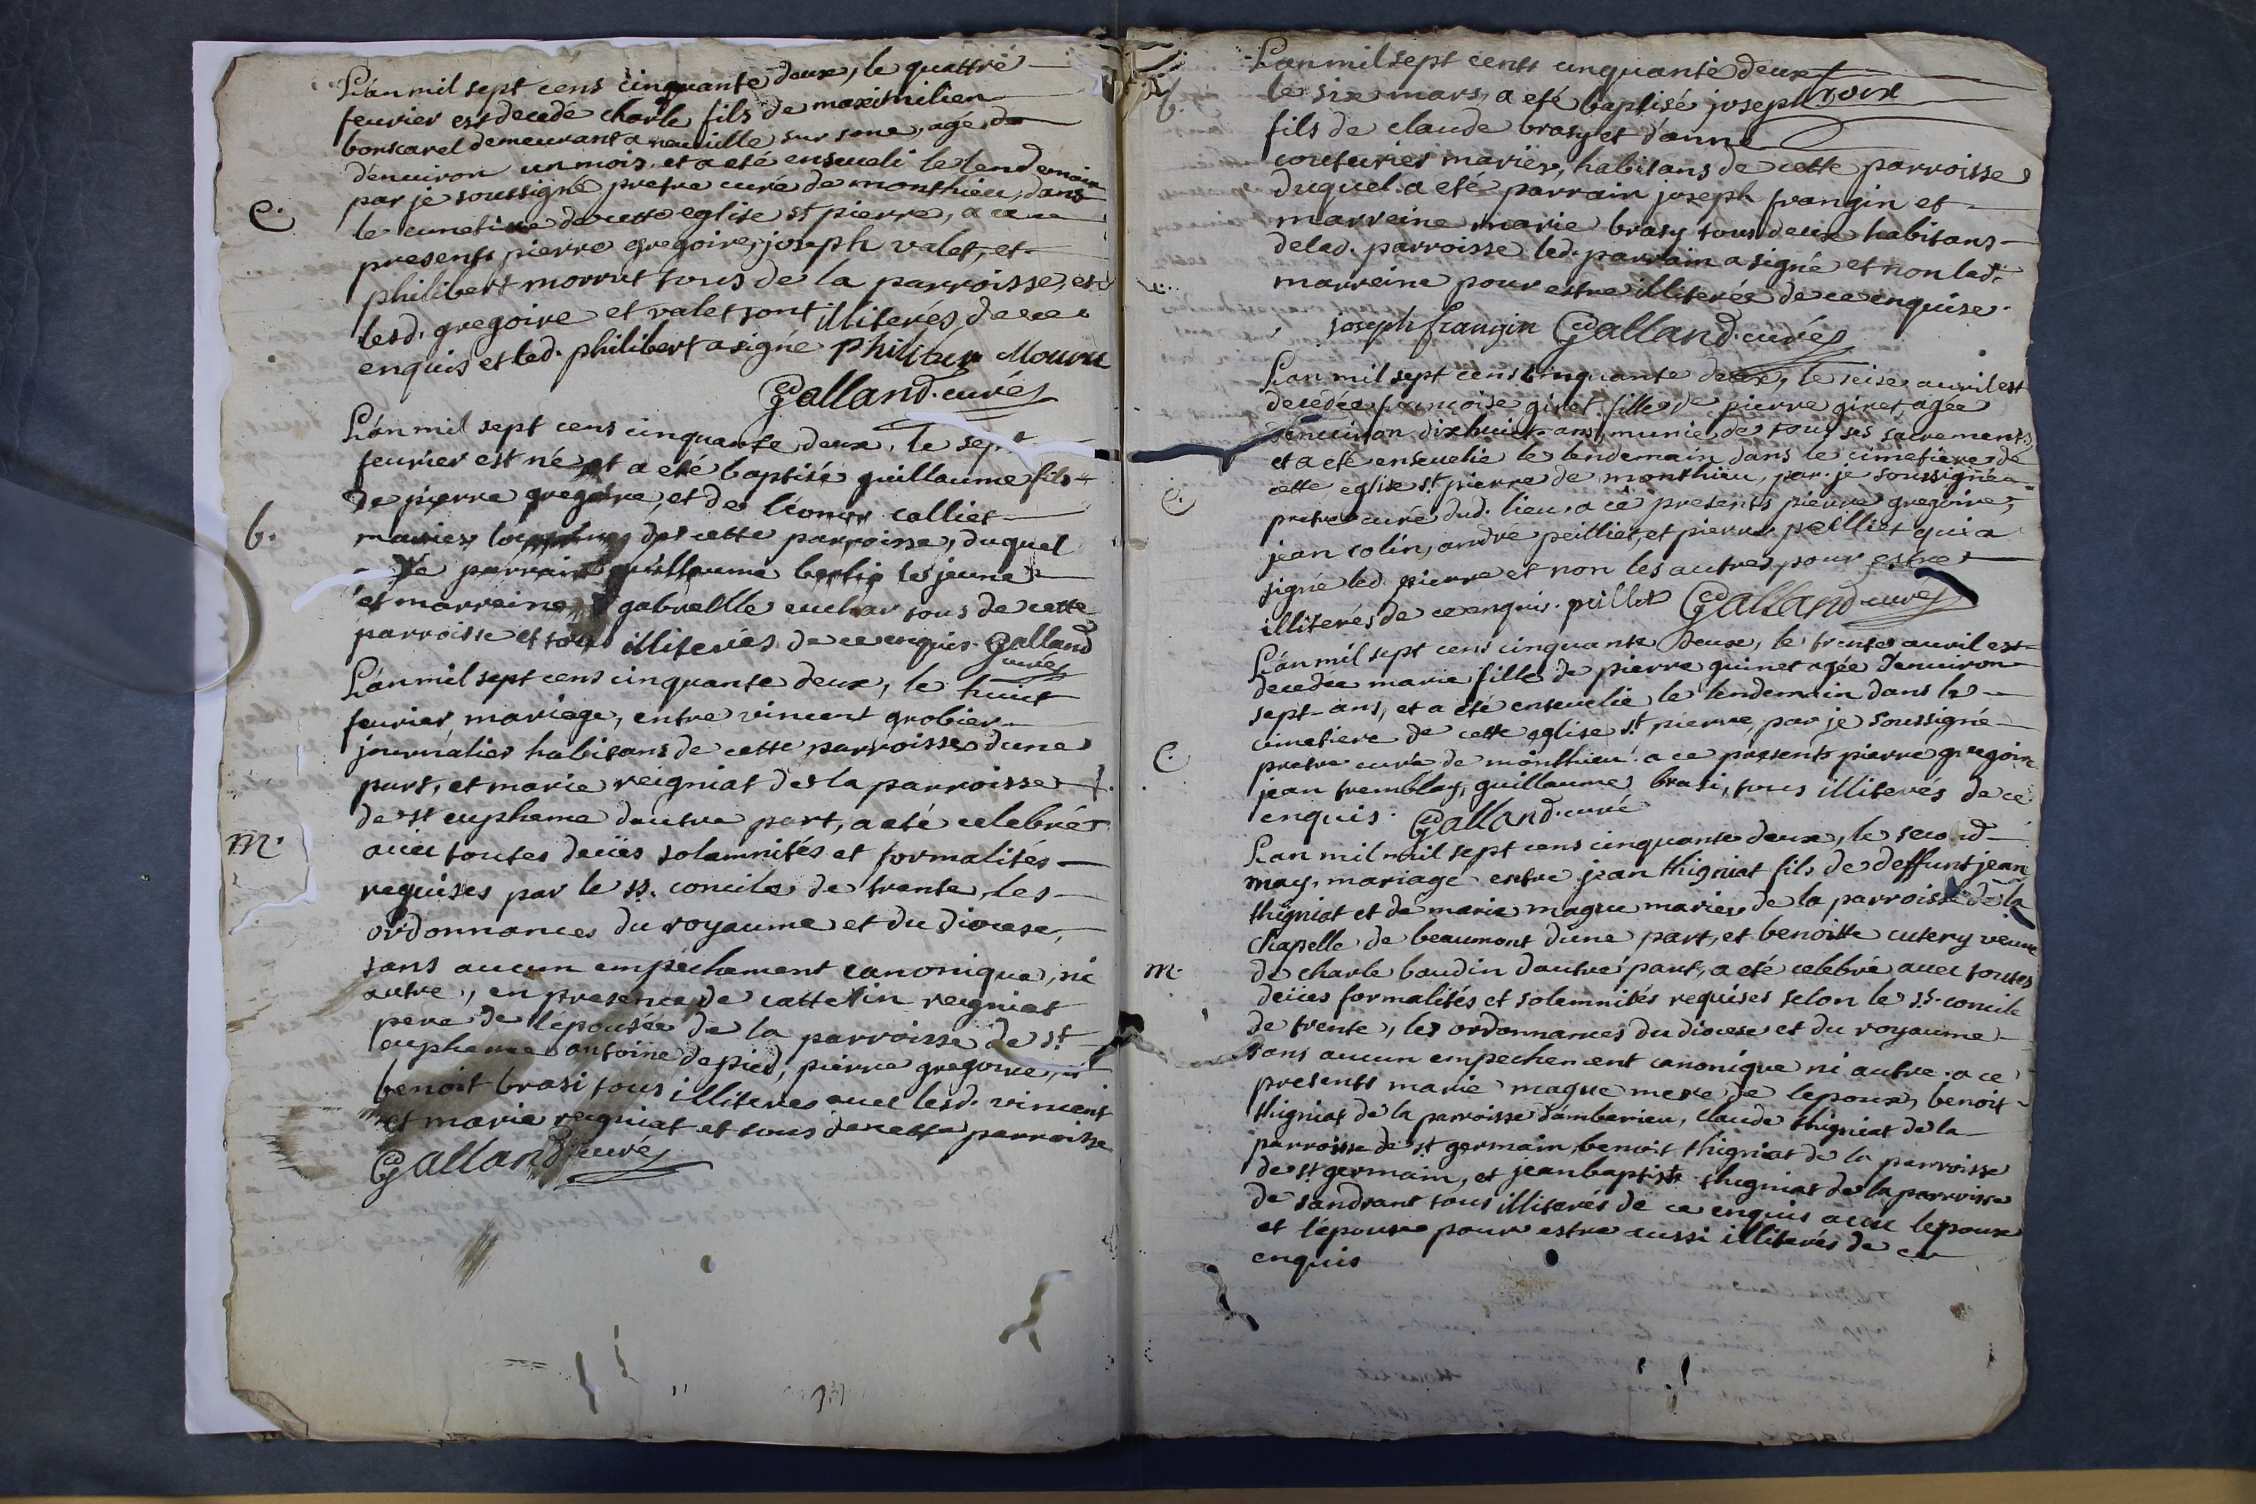 L'an mil sept cens cinquante deux, le quattre
feurier est decedé charle fils de maximilien
bonscarel demeurant a neuville sur sone, agé de
d'enuiron un mois, et a eté enseueli le lendemain
par je soussigné pretre curé de monthieu, dans
e.
le cimetiere de cette eglise st pierre, a ce
presents pierre gregoire, joseph valet, et
philibert morrut tous de la parroisse, et
lesd. gregoire et valet sont illiterés de ce
enquis et led. philibert a signé philiber Mouru
Galland curé
L'an mil sept cens cinquante deux, le sept
feurier est né et a eté baptisé guillaume fils
de pierre gregoire, et de léonor colliet
b.
mariés de cette parroisse, duquel
parrain guillaume berlie le jeune
et marreine gabrielle euchar tous de cette
parroisse et tous illiterés de ce enquis. Galland
curé
L'an mil sept cens cinquante deux, le huit
feurier mariage, entre vincent grobier
journalier habitans de cette parroisse d'une
part, et marie reigniat de la parroisse
de st eupheme d'autre part, a eté celebré
m.
auec toutes deües solamnités et formalités
requises par le st. concile de trente, les
ordonnances du royaume et du diocese,
sans aucun empechement canonique, ni
autre, en presence de cattelin reigniat
pere de l'epousée de la parroisse de st
eupheme antoine depied, pierre gregoire, et
benoit brasi tous illiteres auec lesd. vincent
et marie reigniat et tous de cette parroisse
Galland curé
L'an mil sept cents cinquante deux
b.
le six mars, a eté baptisé joseph
fils de claude brasy et d'anne
couturier mariés, habitans de cette parroisse
duquel a eté parrain joseph frangin et
marreine marie brasy tous deux habitans
de lad. parroisse led. parrain a signé et non lad.
marreine pour estre illiterée de ce enquise.
joseph frangin Galland curé
L'an mil sept cens cinquante deux, le seise auril est
decedée francoise giret fille de pierre giret, agée
d'enuiron dixhuit ans, munie de tous ses sacrements
et a eté enseuelie le lendemain dans le cimetiere de
cette eglise st pierre de monthieu, par je soussigné
e.
pretre curé dud. lieu, a ce presents pierre gregoire,
jean colin, andré peilliet, et pierre peilliet qui a
signé led. pierre et non les autres pour estre
illiterés de ce enquis. peillet Galland curé
L'an mil sept cens cinquante deux, le trente auril est
decedée marie fille de pierre guinet agée d'enuiron
sept ans, et a eté enseuelie le lendemain dans le
cimetiere de cette eglise st pierre, par je soussigné
e.
pretre curé de monthieu. a ce presents pierre gregoire
jean tremblay, guillaume brasi, tous illiterés de ce
enquis. Galland curé
L'an mil mil sept cens cinquante deux, le second
may, mariage entre jean thigniat fils de deffunt jean
thigniat et de marie mague mariés de la parroisse de la
chapelle de beaumont d'une part, et benoitte cutery veuue
m.
de charle baudin d'autre part, a eté celebré auec toutes
deües formalités et solemnités requises selon le st. concile
de trente, les ordonnances du diocese et du royaume
sans aucun empechement canonique ni autre. a ce
presents marie mague mere de l'epoux, benoit
thigniat de la parroisse d'amberieu, claude thigniat de la
parroisse de st germain, benoit thigniat de la parroisse
de st germain, et jeanbaptiste thigniat de la parroisse
de sandrant tous illiterés de ce enquis auec l'epoux
et l'épouse pour estre aussi illiterés de ce
enquis